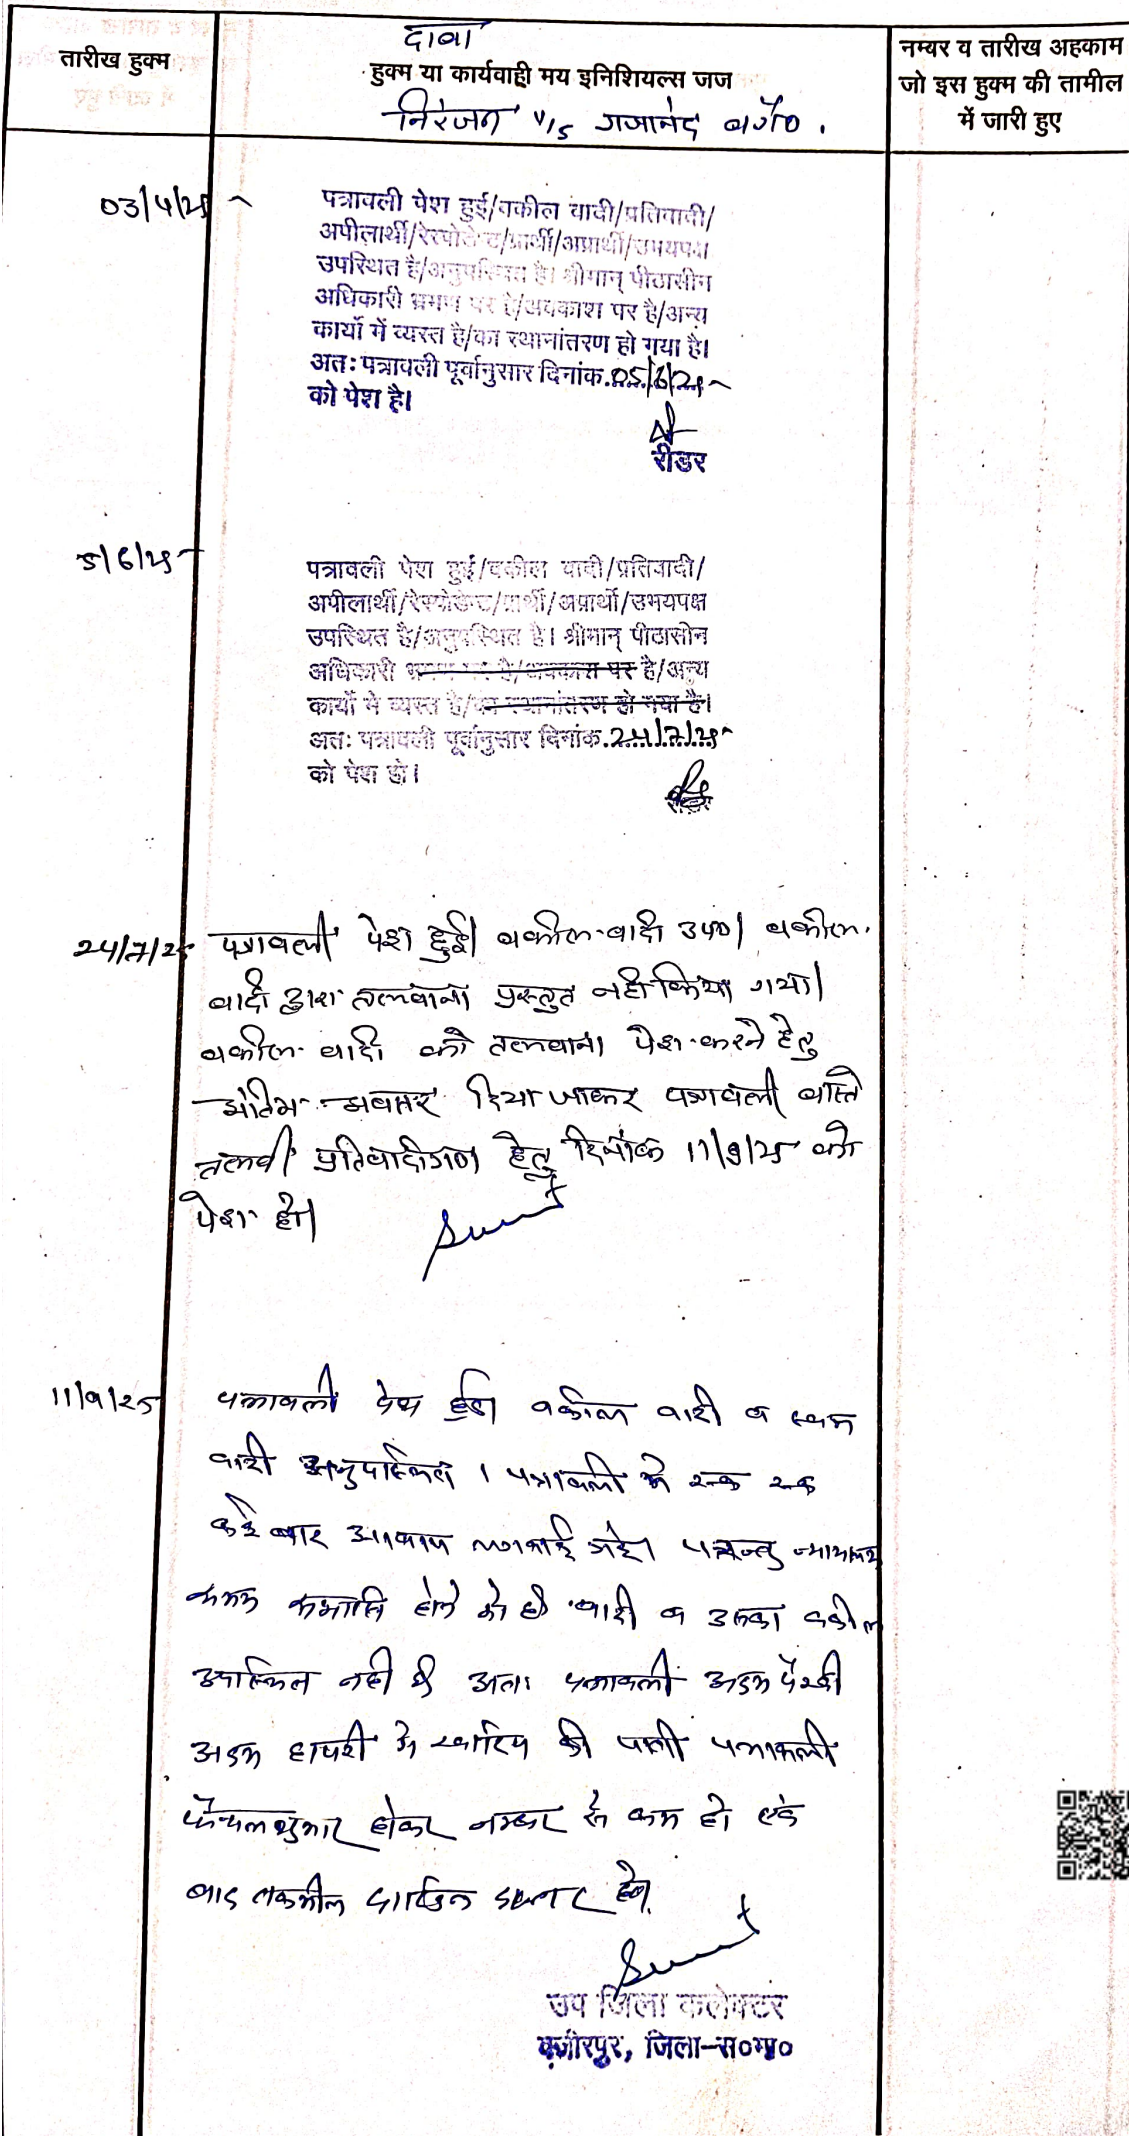 दावा
तारीख हुक्म
हुक्म या कार्यवाही मय इनिशियल्स जज
निरंजन v/s गजानंद वगै० .
नम्बर व तारीख अहकाम
जो इस हुक्म की तामील
में जारी हुए
03/4/25
पत्रावली पेश हुई/वकील वादी/प्रतिवादी/
अपीलार्थी/रेस्पोडेन्ट/प्रार्थी/अप्रार्थी/उभयपक्ष
उपस्थित है/अनुपस्थित है। श्रीमान् पीठासीन
अधिकारी भ्रमण पर है/अवकाश पर है/अन्य
कार्यो में व्यस्त है/का स्थानांतरण हो गया है।
अतः पत्रावली पूर्वानुसार दिनांक.05/6/25
को पेश है।
रीडर
5/6/25
पत्रावली पेश हुई/वकील वादी/प्रतिवादी/
अपीलार्थी/रेस्पोडेन्ट/प्रार्थी/अप्रार्थी/उभयपक्ष
उपस्थित है/अनुपस्थित है। श्रीमान् पीठासीन
अधिकारी भ्रमण पर है/अवकाश पर है/अन्य
कार्यो मे व्यस्त है/का स्थानांतरण हो गया है।
अतः पत्रावली पूर्वानुसार दिनांक.24/7/25
को पेश हो।
रीडर
24/7/25 पत्रावली पेश हुई। वकील वादी उप०। वकील
वादी द्वारा तलवाना प्रस्तुत नही किया गया।
वकील वादी को तलवाना पेश करने हेतु
अंतिम अवसर दिया जाकर पत्रावली वास्ते
तलवी प्रतिवादीगण हेतु दिनांक 11/9/25 को
पेश हो।
11/9/25 पत्रावली पेश हुई। वकील वादी व स्वयं
वादी अनुपस्थित । पत्रावली मे रूक रूक
कई बार आवाज लगवाई गई। परन्तु न्यायालय
समय समाप्ति होने को है वादी व उसका वकील
उपस्थित नही है अतः पत्रावली अदम पैरवी
अदम हाजरी मे खारिज की जाती पत्रावली
फैसल शुमार होकर नम्बर से कम हो एवं
बाद तकमील दाखिल दफ्तर हो।
उप जिला कलेक्टर
वजीरपुर, जिला-स०मा०